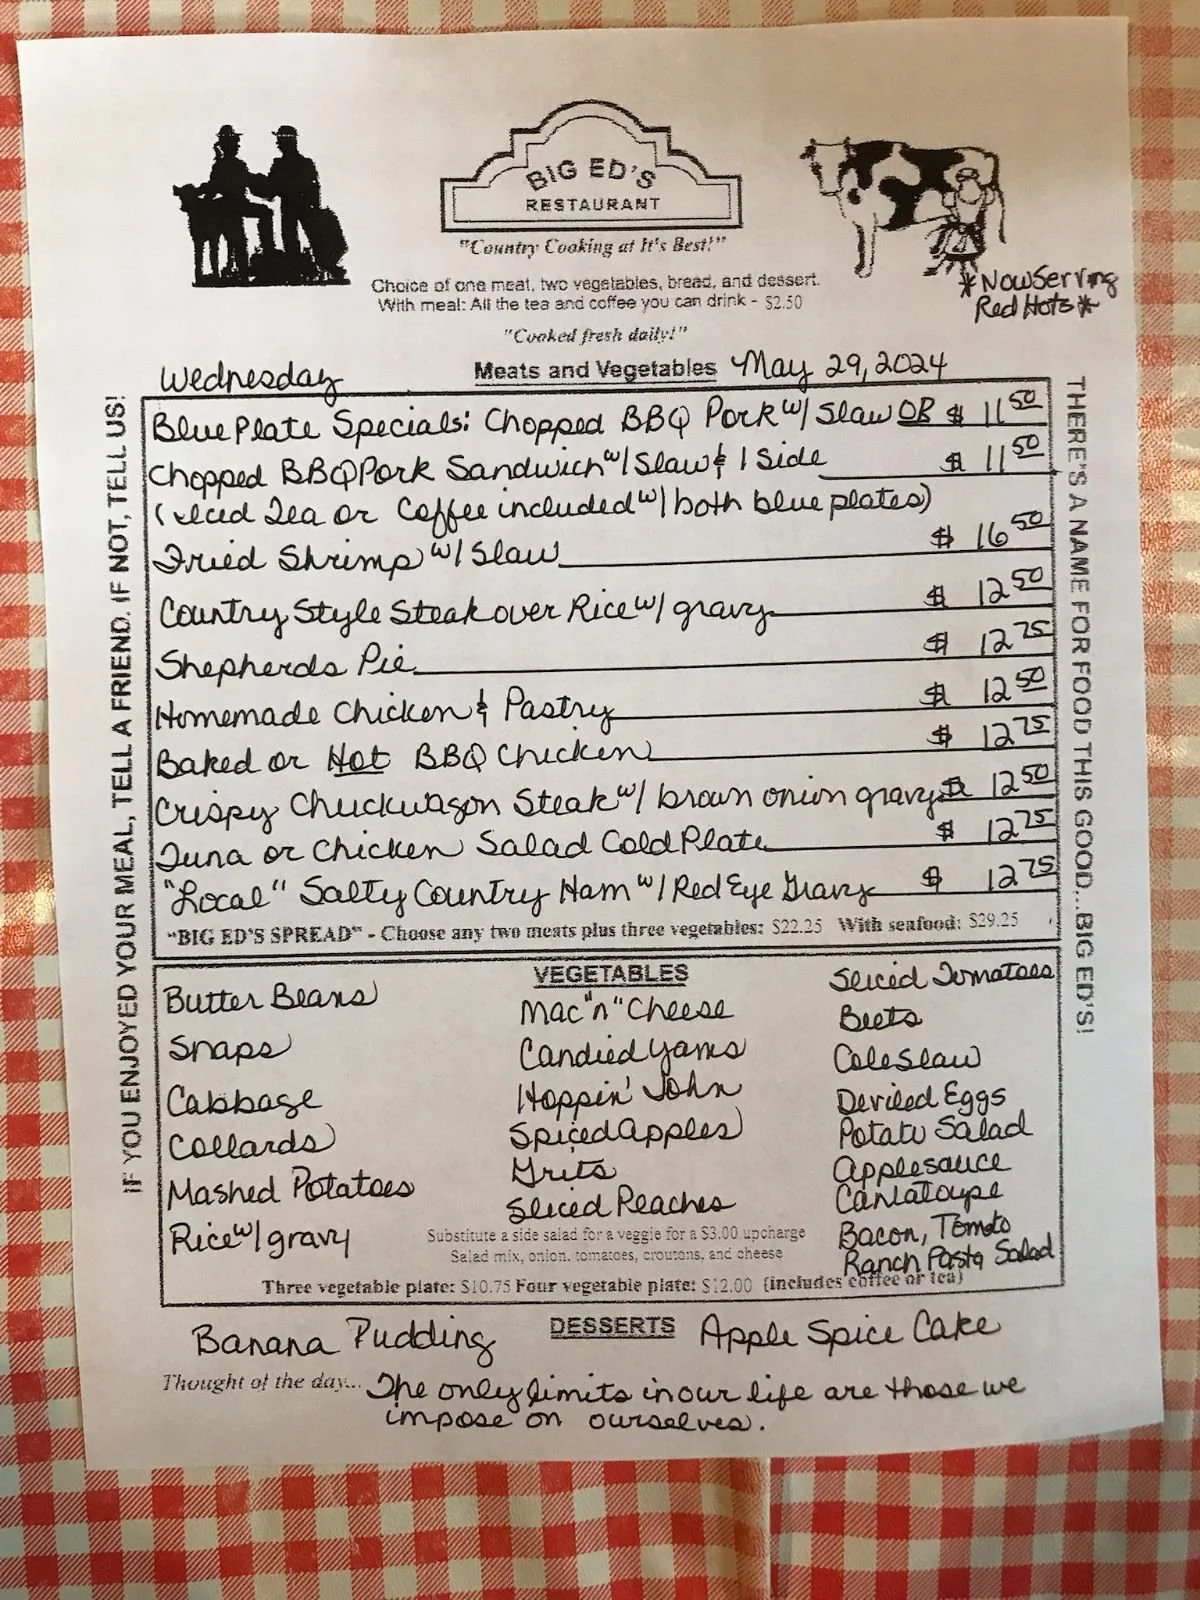 BIG ED'S
RESTAURANT
"Country Cooking at It's Best!"
Choice of one meat, two vegetables, bread, and dessert.
With meal: All the tea and coffee you can drink - $2.50
*Now Serving
Red Hots*
"Cooked fresh daily!"
Wednesday Meats and Vegetables May 29, 2024
IF YOU ENJOYED YOUR MEAL, TELL A FRIEND. IF NOT, TELL US!
Blue Plate Specials: Chopped BBQ Pork w/ Slaw OR $ 11 50
Chopped BBQ Pork Sandwich w/ Slaw & 1 Side $ 11 50
(Iced Tea or Coffee included w/ both blue plates)
Fried Shrimp w/ Slaw $ 16 50
Country Style Steak over Rice w/ gravy $ 12 50
Shepherds Pie $ 12 75
Homemade Chicken & Pastry $ 12 50
Baked or Hot BBQ Chicken $ 12 75
Crispy Chuckwagon Steak w/ brown onion gravy $ 12 50
Tuna or Chicken Salad Cold Plate $ 12 75
"Local" Salty Country Ham w/ Red Eye Gravy $ 12 75
"BIG ED'S SPREAD" - Choose any two meats plus three vegetables: $22.25 With seafood: $29.25
THERE'S A NAME FOR FOOD THIS GOOD...BIG ED'S!
VEGETABLES
Butter Beans
Snaps
Cabbage
Collards
Mashed Potatoes
Rice w/ gravy
Mac "n" Cheese
Candied Yams
Hoppin' John
Spiced apples
Grits
Sliced Peaches
Sliced Tomatoes
Beets
Cole Slaw
Deviled Eggs
Potato Salad
Applesauce
Cantaloupe
Bacon, Tomato
Ranch Pasta Salad
Substitute a side salad for a veggie for a $3.00 upcharge
Salad mix, onion, tomatoes, croutons, and cheese
Three vegetable plate: $10.75 Four vegetable plate: $12.00 (includes coffee or tea)
DESSERTS
Banana Pudding
Apple Spice Cake
Thought of the day... The only limits in our life are those we
impose on ourselves.